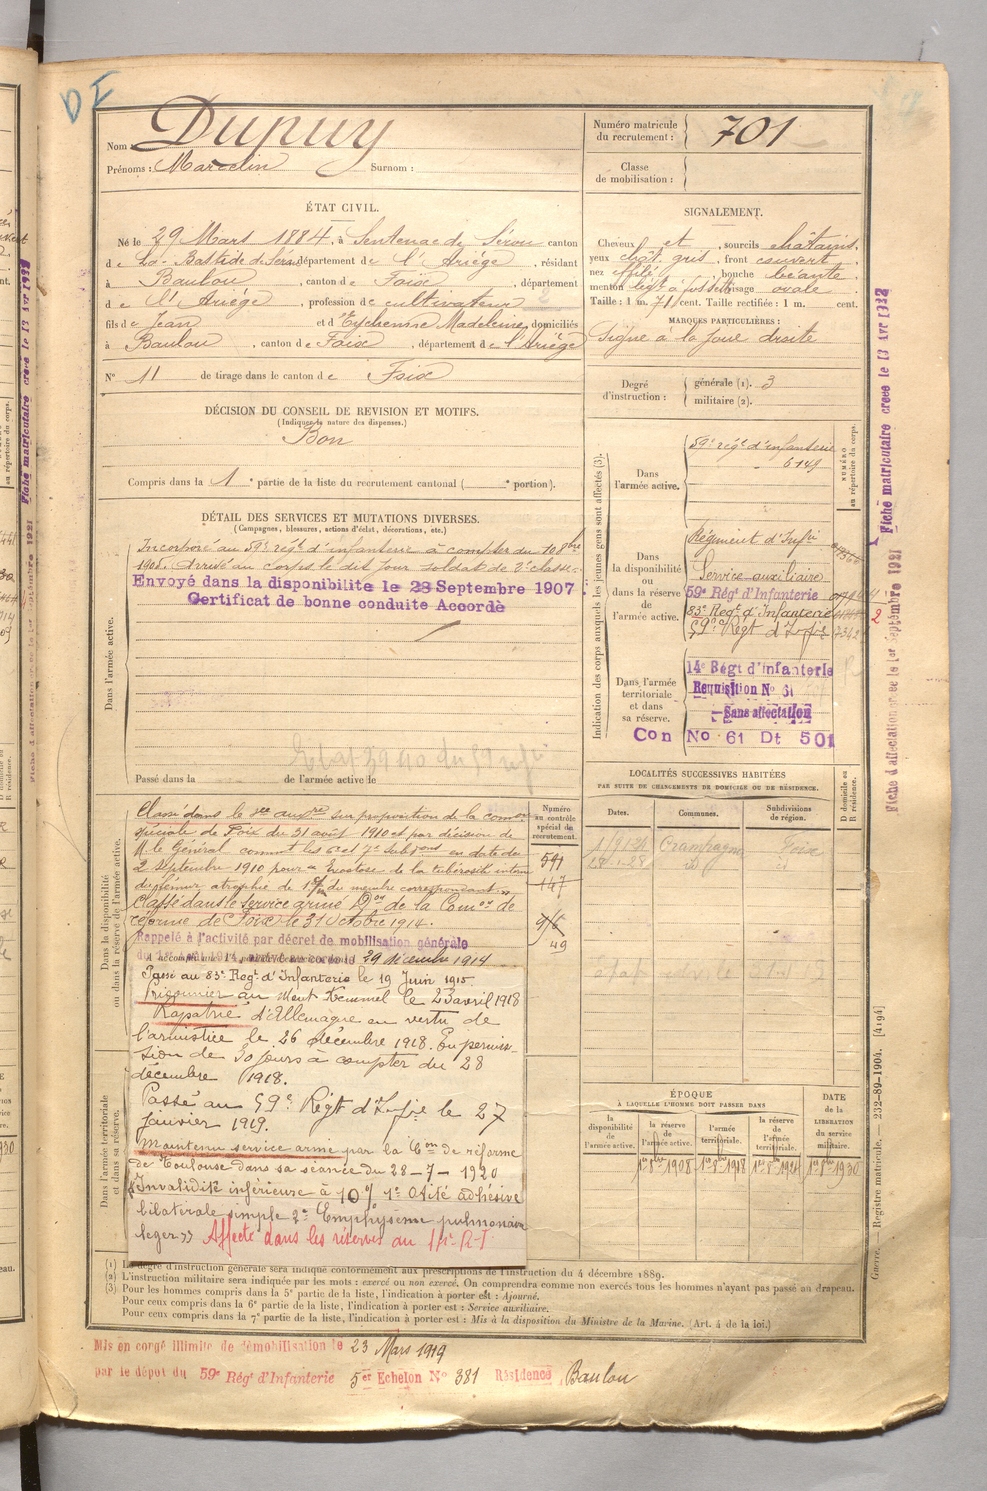 DF
Nom : Dupuy
Prénoms : Marcelin Surnom :
Numéro matricule du recrutement : 701
Classe de mobilisation :
ÉTAT CIVIL.
Né le 29 Mars 1884, à Sentenac de Sérou canton
de La Bastide de Sérou département de l'Ariège, résidant
à Baulou, canton de Foix, département
de l'Ariège, profession de cultivateur
fils de Jean et d'Eychenne Madeleine, domiciliés
à Baulou, canton de Foix, département de l'Ariège
N° 11 de tirage dans le canton de Foix
SIGNALEMENT.
Cheveux et sourcils châtains,
yeux chât. gris, front couvert,
nez effilé, bouche béante,
menton à fossette visage ovale
Taille : 1 m. 71 cent. Taille rectifiée : 1 m. cent.
MARQUES PARTICULIÈRES :
Signe à la joue droite
Degré d'instruction : générale (1). 3
militaire (2).
DÉCISION DU CONSEIL DE REVISION ET MOTIFS.
(Indiquer la nature des dispenses.)
Bon
Compris dans la 1e partie de la liste du recrutement cantonal ( e portion).
DÉTAIL DES SERVICES ET MUTATIONS DIVERSES.
(Campagnes, blessures, actions d'éclat, décorations, etc.)
Dans l'armée active.
Incorporé au 59e régt d'infanterie à compter du 10 8bre
1905. Arrivé au corps le dit jour soldat de 2e classe.
Envoyé dans la disponibilité le 28 Septembre 1907
Certificat de bonne conduite Accordé
Passé dans la de l'armée active le
Indication des corps auxquels les jeunes gens sont affectés (3).
NUMÉRO au répertoire du corps.
Dans l'armée active.
59e régt d'infanterie
6149
Dans la disponibilité ou dans la réserve de l'armée active.
Régiment d'Infie
Service auxiliaire
59e Régt d'Infanterie
83e Régt d'Infanterie
59e Régt d'Infie
Dans l'armée territoriale et dans sa réserve.
14e Régt d'infanterie
Requisition N° 61
Sans affectation
Con No 61 Dt 501
Dans la disponibilité ou dans la réserve de l'armée active.
Numéro au contrôle spécial du recrutement.
541
147
49
Classé dans le sce auxre sur proposition de la comon
spéciale de Foix du 31 août 1910 et par décision de
M. le Général commt les 6e et 7e Subdons en date du
2 Septembre 1910 pour Exostose de la tubérosité interne
du fémur, atrophie de du membre correspondant
Classé dans le service armé Don de la Comon de
réforme de Foix le 31 Octobre 1914.
Rappelé à l'activité par décret de mobilisation générale
29 décembre 1914
Passé au 83e Regt d'Infanterie le 19 Juin 1915
Prisonnier au Mont Kemmel le 23 avril 1918
Rapatrié d'Allemagne en vertu de
l'armistice le 26 décembre 1918. En permis-
sion de 30 jours à compter du 28
décembre 1918.
Passé au 59e Régt d'Infie le 27
janvier 1919.
Maintenu service armé par la Con de réforme
de Toulouse dans sa séance du 28-7-1920
Invalidité inférieure à 10% 1° Otite adhésive
bilatérale simple 2° Emphysème pulmonaire
léger >> Affecté dans les réserves au 14e R.I.
Dans l'armée territoriale et dans sa réserve.
LOCALITÉS SUCCESSIVES HABITÉES
PAR SUITE DE CHANGEMENTS DE DOMICILE OU DE RÉSIDENCE.
Dates. Communes. Subdivisions de région. D domicile ou R résidence.
Foix
ÉPOQUE
À LAQUELLE L'HOMME DOIT PASSER DANS
la disponibilité de l'armée active.
la réserve de l'armée active.
l'armée territoriale.
la réserve de l'armée territoriale.
DATE de la LIBÉRATION du service militaire.
1er 8bre 1908 1er 8bre 1918 1er 8bre 1924 1er 8bre 1930
(1) Le degré d'instruction générale sera indiqué conformément aux prescriptions de l'instruction du 4 décembre 1889.
(2) L'instruction militaire sera indiquée par les mots : exercé ou non exercé. On comprendra comme non exercés tous les hommes n'ayant pas passé au drapeau.
(3) Pour les hommes compris dans la 5e partie de la liste, l'indication à porter est : Ajourné.
Pour ceux compris dans la 6e partie de la liste, l'indication à porter est : Service auxiliaire.
Pour ceux compris dans la 7e partie de la liste, l'indication à porter est : Mis à la disposition du Ministre de la Marine. (Art. 4 de la loi.)
Mis en congé illimité de démobilisation le 23 Mars 1919
par le dépôt du 59e Régt d'Infanterie 5er Echelon No 381 Résidence Baulou
Fiche matriculaire créée le 13 Avr 1932
Fiche d'affectation créée le 1er Septembre 1921
Guerre. — Registre matricule. — 232-89-1904. [4194]